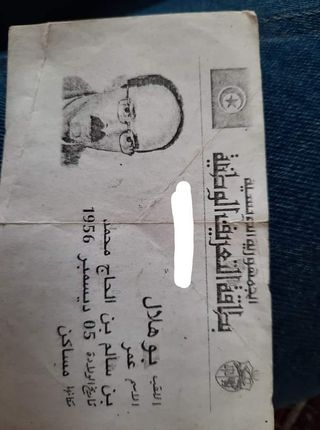 الجمهورية التونسية
بطاقة التعريف الوطنية
اللقب بوهلال
الاسم عمر
بن سالم بن الحاج محمد
تاريخ الولادة 05 ديسمبر 1956
مكانها مساكن